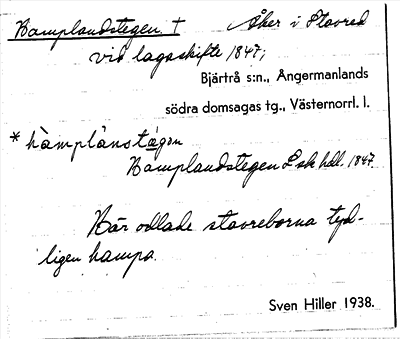 Hamplandstegen † Åker i Stavred
vid lagaskifte 1847;
Bjärtrå s:n., Ångermanlands
södra domsagas tg., Västernorrl. l.
* hàmplànstä̀gen
Hamplandstegen Lsk hdl. 1847.
Här odlade stavreborna tyd-
ligen hampa.
Sven Hiller 1938.